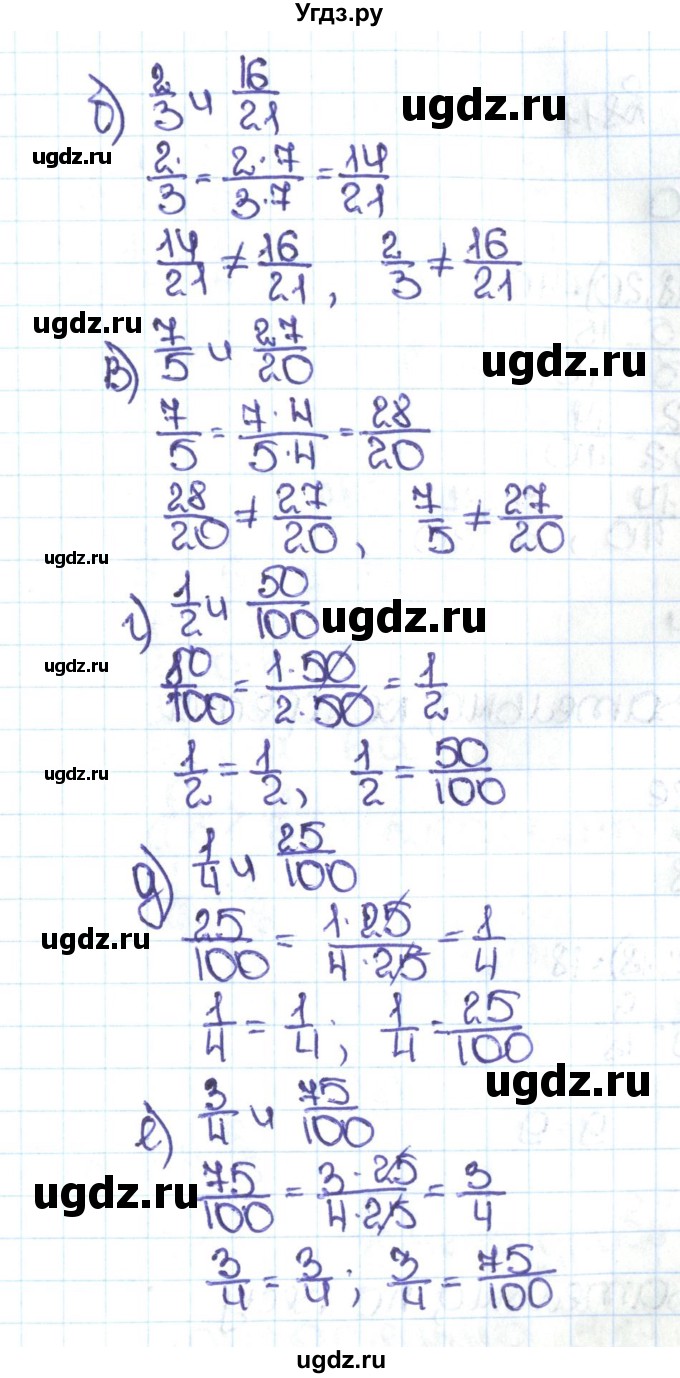 Угдз.ру
б) 2/3 и 16/21
ugdz.ru
ugdz.ru
2/3 = 2·7/3·7 = 14/21
14/21 ≠ 16/21, 2/3 ≠ 16/21
ugdz.ru
в) 7/5 и 27/20
ugdz.ru
7/5 = 7·4/5·4 = 28/20
28/20 ≠ 27/20, 7/5 ≠ 27/20
ugdz.ru
г) 1/2 и 50/100
ugdz.ru
ugdz.ru
50/100 = 1·50/2·50 = 1/2
ugdz.ru
1/2 = 1/2, 1/2 = 50/100
д) 1/4 и 25/100
ugdz.ru
25/100 = 1·25/4·25 = 1/4
1/4 = 1/4; 1/4 = 25/100
ugdz.ru
е) 3/4 и 75/100
ugdz.ru
75/100 = 3·25/4·25 = 3/4
3/4 = 3/4; 3/4 = 75/100
ugdz.ru